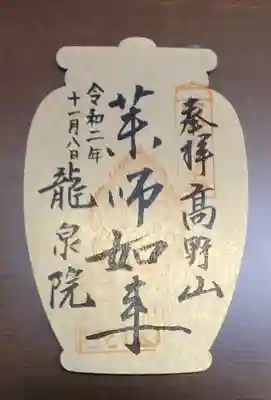 奉拝 高野山
薬師如来
龍泉院
令和二年
十一月八日